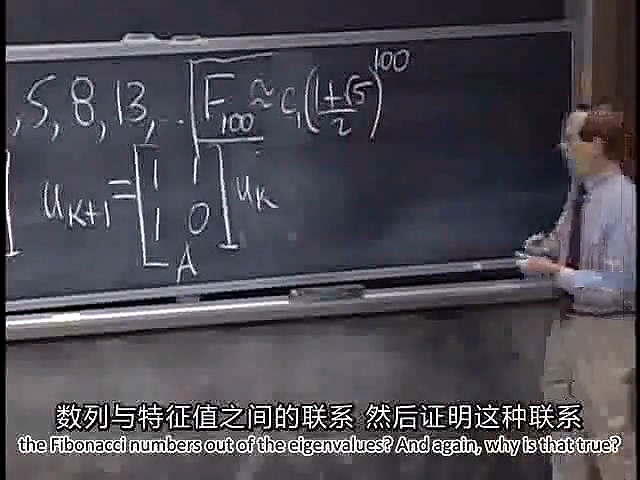 , 5, 8, 13, ... F₁₀₀ ≈ c₁((1+√5)/2)¹⁰⁰
u_{K+1} = [1 1; 1 0] u_K
A
数列与特征值之间的联系 然后证明这种联系
the Fibonacci numbers out of the eigenvalues? And again, why is that true?